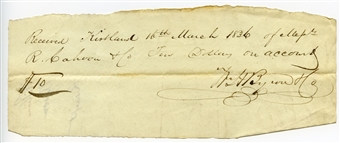 Received Kirtland 16th March 1836 of Messrs
R. Cahoon & Co Ten Dollars on account
$10
Wm & Co